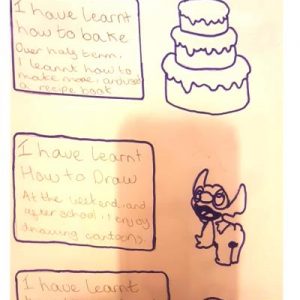 I have learnt
how to bake
Over half term,
I learnt how to
make more, and used
a recipe book
I have learnt
How to Draw
At the weekend, and
after school, I enjoy
drawing cartoons
I have learnt